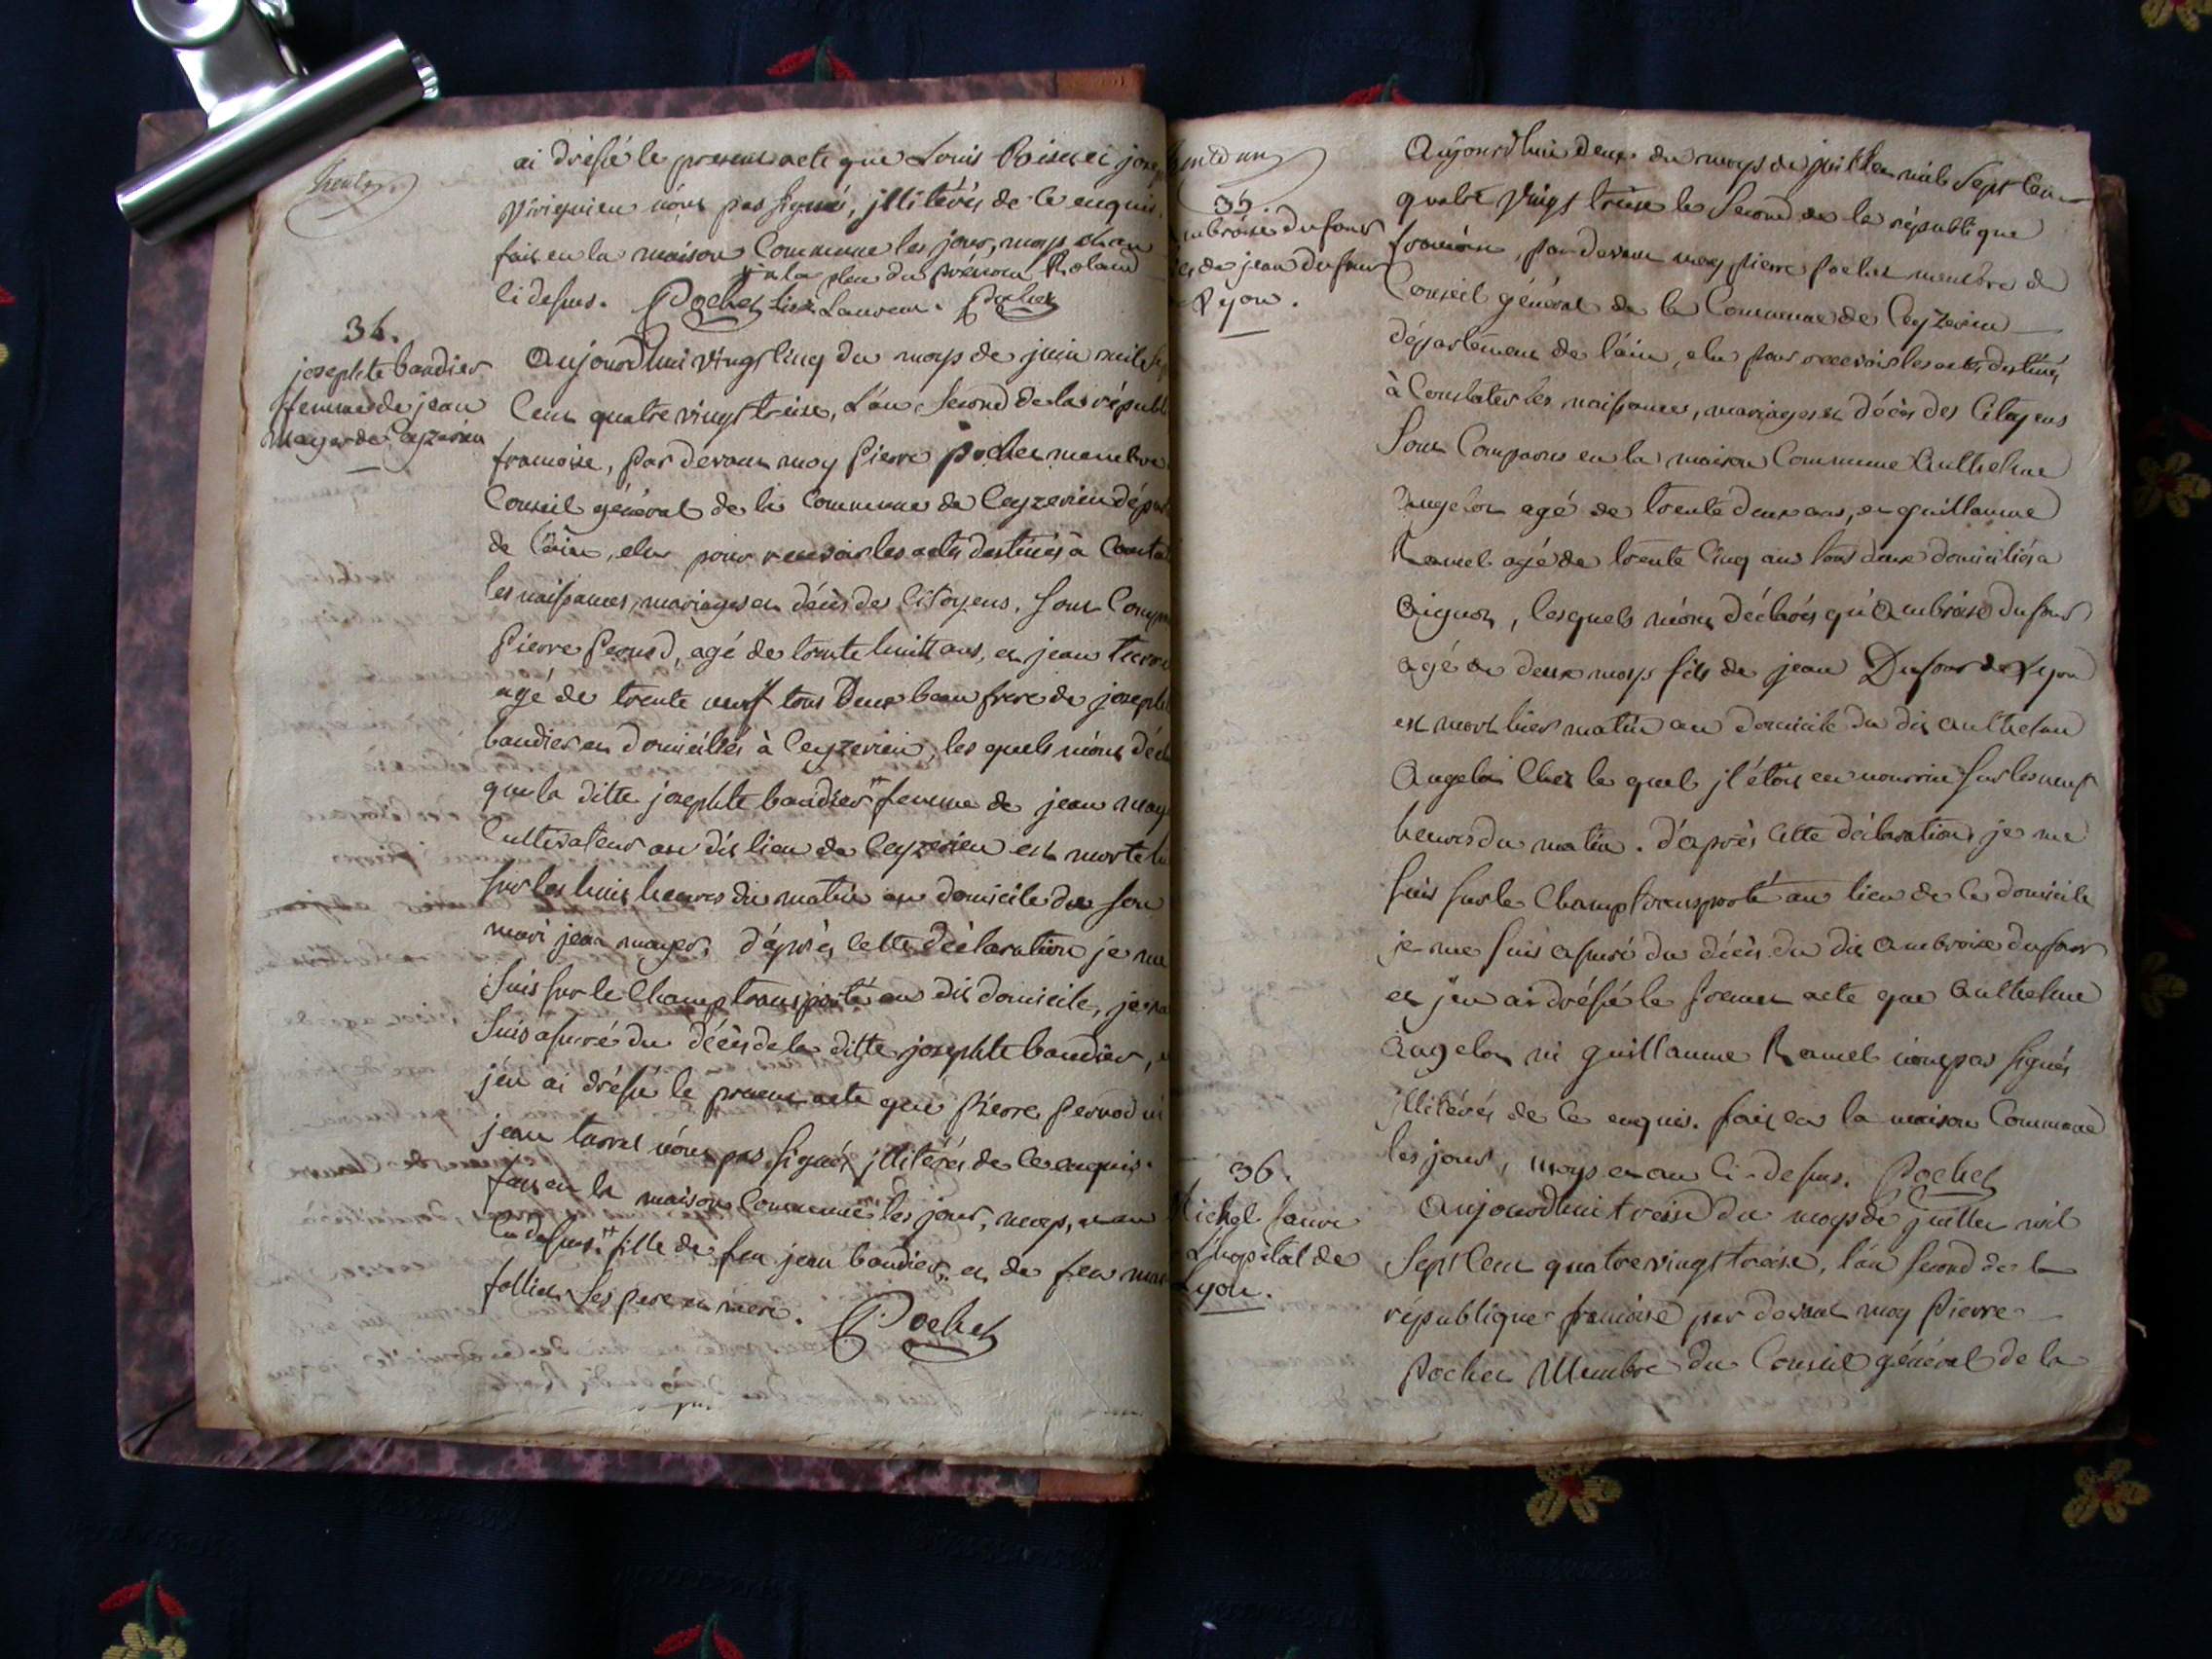 ai dressé le present acte que Louis Poisat et jose
Viriquieu n'ont pas signés, jllitérés de ce enquis.
fait en la maison Commune les jour, moys et an
à la place du prénom Roland
ci dessus. Pochet lisez Laurent. Pochet
34.
josephte baudier
femme de jean
Mayer de Ceyzerieu
Aujourdhui vingt cinq du moys de juin mil se
Cent quatre vingt treise, L'an second de la républ
francoise, par devant moy Pierre Pochet membre
Conseil général de la Commune de Ceyzerieu dépar
de l'ain, elu pour recevoir les actes destinés à Consta
les naissances, mariages et décès des Citoyens, sont Comp
Pierre Pernod, agé de trente huitt ans, et jean
agé de trente neuf tous deux beau frere de joseph
baudier et domiciliés à Ceyzerieu, les quels m'ont décl
que la ditte josephte baudier femme de jean may
Cultivateur au dit lieu de Ceyzerieu est morte
sur les huit heures du matin au domicile de son
mari jean mayer. d'après cette déclaration je me
suis sur le Champ transporté au dit domicile, je
suis assuré du décès de la ditte josephte baudier,
j'en ai dréssé le present acte que Pierre Pernod ni
jean n'ont pas signés jllitérés de ce enquis.
fait en la maison Commune les jour, moys, et an
Ci dessus. fille de feu jean baudier et de feu
ses pere et mere. Pochet
35.
mbroise dufour
de jean dufour
Lyon.
Aujourdhui deux du moys de juillet mil sept Cent
quatre vingt treise le second de la république
francoise, par devant moy pierre pochet membre du
Conseil général de la Commune de Ceyzerieu
département de l'ain, elu pour recevoir les actes destinés
à Constater les naissances, mariages et décès des Citoyens
Sont Comparus en la maison Commune Anthelme
Angelot agé de trente deux ans, et guillaume
Ramel agé de trente Cinq ans tous deux domiciliés a
Aignoz, lesquels m'ont déclarés qu'Ambroise dufour
agé de deux moys fils de jean Dufour de Lyon
est mort hier matin au domicile du dit anthelme
Angelot Chez le quel jl étoit en nourrice sur les neuf
heures du matin. d'après cette déclaration je me
suis sur le Champ transporté au lieu de ce domicile
je me suis assuré du décès du dit ambroise dufour
et j'en ai dréssé le present acte que anthelme
Angelot ni guillaume Ramel n'ont pas signés
jllitérés de ce enquis. fait en la maison Commune
les jour, moys et an Ci-dessus. Pochet
36.
ichel
L'hopital de
Lyon.
Aujourdhui treise du moys de juillet mil
sept Cent quatre vingt treise, l'an second de la
république francoise par devant moy Pierre
Pochet Membre du Conseil général de la